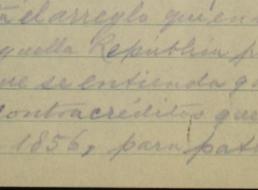 el arreglo que en
quella República p
ue se entienda q
contracréditos que
1856, para pat